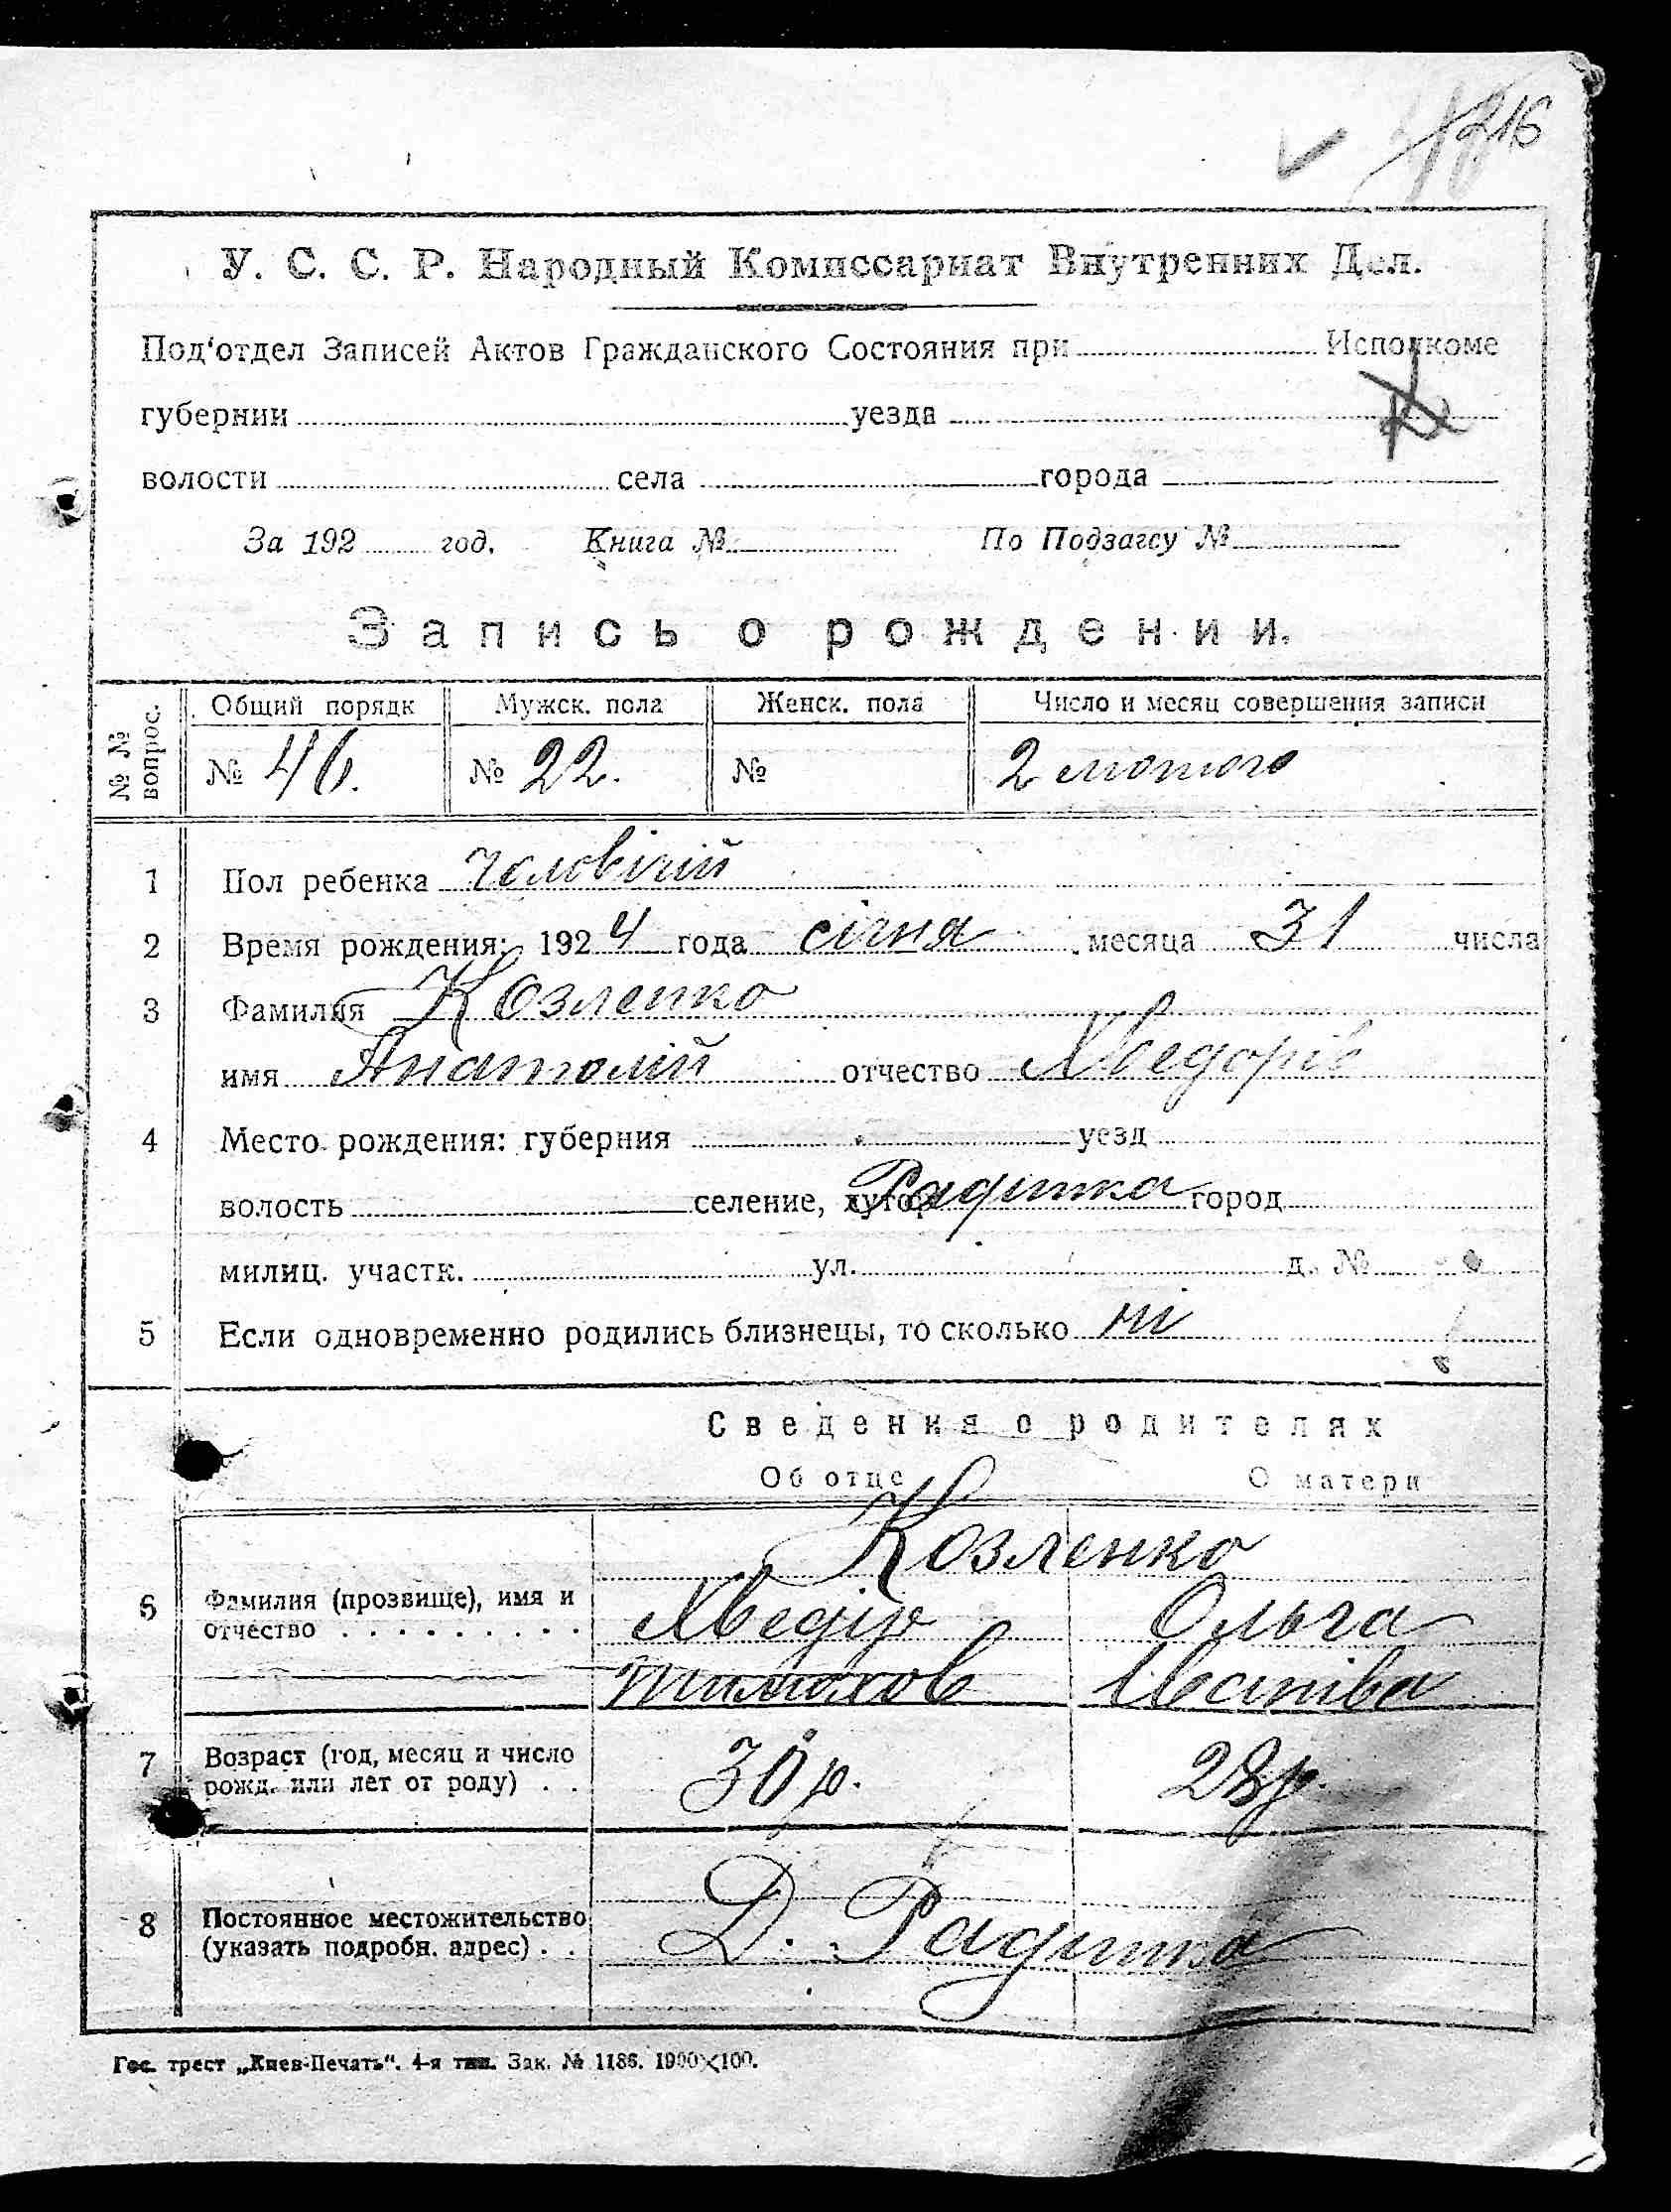 216
У. С. С. Р. Народный Комиссариат Внутренних Дел.
Под'отдел Записей Актов Гражданского Состояния при Исполкоме
губернии уезда
волости села города
За 192 год. Книга № По Подзагсу №
Запись о рождении.
№ № вопрос. Общий порядк Мужск. пола Женск. пола Число и месяц совершения записи
№ 46. № 22. № 2 лютого
1 Пол ребенка чоловічий
2 Время рождения: 1924 года січня месяца 31 числа
3 Фамилия Козленко
имя Анатолій отчество Хведорів
4 Место рождения: губерния уезд
волость селение, хутор Радинка город
милиц. участк. ул. д. №
5 Если одновременно родились близнецы, то сколько ні
Сведения о родителях
Об отце О матери
Козленко
6 Фамилия (прозвище), имя и отчество Хведір Ольга
Євстівa
7 Возраст (год, месяц и число рожд. или лет от роду) 30 р. 28 р.
8 Постоянное местожительство (указать подробн. адрес) Д. Радинка
Гос. трест „Киев-Печать". 4-я тип. Зак. № 1186. 1900×100.